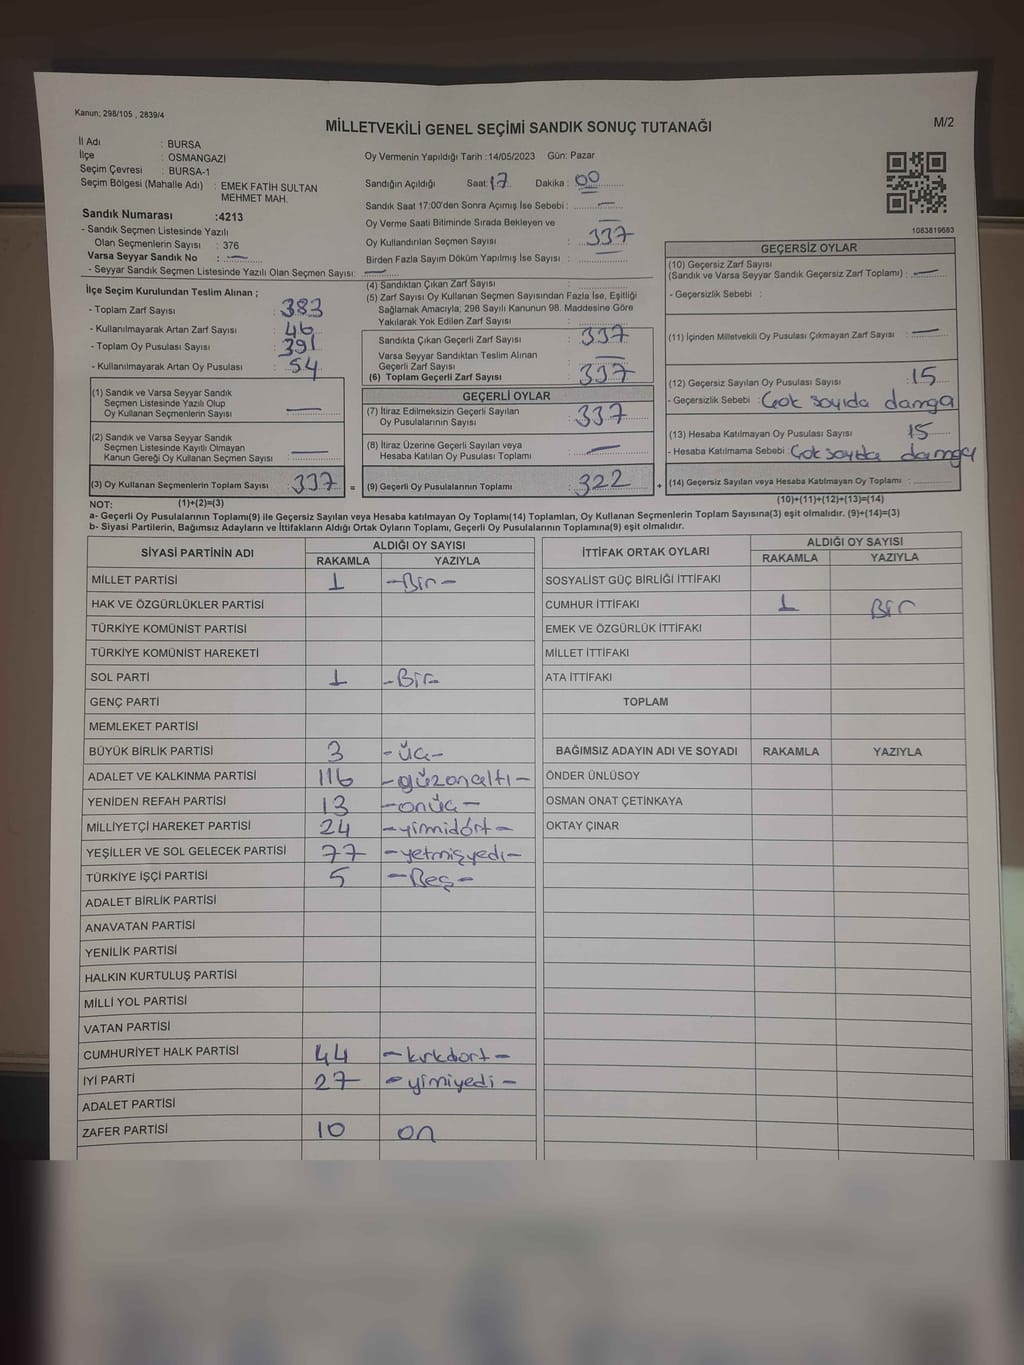 Kanun; 298/105 , 2839/4
MİLLETVEKİLİ GENEL SEÇİMİ SANDIK SONUÇ TUTANAĞI
M/2
İl Adı : BURSA
İlçe : OSMANGAZİ
Seçim Çevresi : BURSA-1
Seçim Bölgesi (Mahalle Adı) : EMEK FATİH SULTAN
MEHMET MAH.
Sandık Numarası :4213
- Sandık Seçmen Listesinde Yazılı
Olan Seçmenlerin Sayısı : 376
Varsa Seyyar Sandık No : —
- Seyyar Sandık Seçmen Listesinde Yazılı Olan Seçmen Sayısı: —
Oy Vermenin Yapıldığı Tarih :14/05/2023 Gün: Pazar
Sandığın Açıldığı Saat: 17 Dakika : 00
Sandık Saat 17:00'den Sonra Açımış İse Sebebi : —
Oy Verme Saati Bitiminde Sırada Bekleyen ve —
Oy Kullandırılan Seçmen Sayısı : 337
Birden Fazla Sayım Döküm Yapılmış İse Sayısı : —
1083819683
İlçe Seçim Kurulundan Teslim Alınan ;
- Toplam Zarf Sayısı : 383
- Kullanılmayarak Artan Zarf Sayısı : 46
- Toplam Oy Pusulası Sayısı : 391
- Kullanılmayarak Artan Oy Pusulası : 54
(1) Sandık ve Varsa Seyyar Sandık
Seçmen Listesinde Yazılı Olup
Oy Kullanan Seçmenlerin Sayısı —
(2) Sandık ve Varsa Seyyar Sandık
Seçmen Listesinde Kayıtlı Olmayan
Kanun Gereği Oy Kullanan Seçmen Sayısı —
(3) Oy Kullanan Seçmenlerin Toplam Sayısı : 337 =
(4) Sandıktan Çıkan Zarf Sayısı :
(5) Zarf Sayısı Oy Kullanan Seçmen Sayısından Fazla İse, Eşitliği
Sağlamak Amacıyla, 298 Sayılı Kanunun 98. Maddesine Göre
Yakılarak Yok Edilen Zarf Sayısı :
Sandıkta Çıkan Geçerli Zarf Sayısı : 337
Varsa Seyyar Sandıktan Teslim Alınan
Geçerli Zarf Sayısı : —
(6) Toplam Geçerli Zarf Sayısı : 337
GEÇERLİ OYLAR
(7) İtiraz Edilmeksizin Geçerli Sayılan
Oy Pusulalarının Sayısı : 337
(8) İtiraz Üzerine Geçerli Sayılan veya
Hesaba Katılan Oy Pusulası Toplamı : —
(9) Geçerli Oy Pusulalarının Toplamı : 322 +
GEÇERSİZ OYLAR
(10) Geçersiz Zarf Sayısı
(Sandık ve Varsa Seyyar Sandık Geçersiz Zarf Toplamı) : —
- Geçersizlik Sebebi :
(11) İçinden Milletvekili Oy Pusulası Çıkmayan Zarf Sayısı : —
(12) Geçersiz Sayılan Oy Pusulası Sayısı : 15
- Geçersizlik Sebebi : Çok sayıda damga
(13) Hesaba Katılmayan Oy Pusulası Sayısı : 15
- Hesaba Katılmama Sebebi : Çok sayıda damga
(14) Geçersiz Sayılan veya Hesaba Katılmayan Oy Toplamı :
NOT: (1)+(2)=(3)
(10)+(11)+(12)+(13)=(14)
a- Geçerli Oy Pusulalarının Toplamı(9) ile Geçersiz Sayılan veya Hesaba katılmayan Oy Toplamı(14) Toplamları, Oy Kullanan Seçmenlerin Toplam Sayısına(3) eşit olmalıdır. (9)+(14)=(3)
b- Siyasi Partilerin, Bağımsız Adayların ve İttifakların Aldığı Ortak Oyların Toplamı, Geçerli Oy Pusulalarının Toplamına(9) eşit olmalıdır.
SİYASİ PARTİNİN ADI ALDIĞI OY SAYISI
RAKAMLA YAZIYLA
MİLLET PARTİSİ 1 -Bir-
HAK VE ÖZGÜRLÜKLER PARTİSİ
TÜRKİYE KOMÜNİST PARTİSİ
TÜRKİYE KOMÜNİST HAREKETİ
SOL PARTİ 1 -Bir-
GENÇ PARTİ
MEMLEKET PARTİSİ
BÜYÜK BİRLİK PARTİSİ 3 -üç-
ADALET VE KALKINMA PARTİSİ 116 -yüzonaltı-
YENİDEN REFAH PARTİSİ 13 -onüç-
MİLLİYETÇİ HAREKET PARTİSİ 24 -yirmidört-
YEŞİLLER VE SOL GELECEK PARTİSİ 77 -yetmişyedi-
TÜRKİYE İŞÇİ PARTİSİ 5 -Beş-
ADALET BİRLİK PARTİSİ
ANAVATAN PARTİSİ
YENİLİK PARTİSİ
HALKIN KURTULUŞ PARTİSİ
MİLLİ YOL PARTİSİ
VATAN PARTİSİ
CUMHURİYET HALK PARTİSİ 44 -kırkdört-
İYİ PARTİ 27 -yimiyedi-
ADALET PARTİSİ
ZAFER PARTİSİ 10 on
İTTİFAK ORTAK OYLARI ALDIĞI OY SAYISI
RAKAMLA YAZIYLA
SOSYALİST GÜÇ BİRLİĞİ İTTİFAKI
CUMHUR İTTİFAKI 1 Bir
EMEK VE ÖZGÜRLÜK İTTİFAKI
MİLLET İTTİFAKI
ATA İTTİFAKI
TOPLAM
BAĞIMSIZ ADAYIN ADI VE SOYADI RAKAMLA YAZIYLA
ÖNDER ÜNLÜSOY
OSMAN ONAT ÇETİNKAYA
OKTAY ÇINAR